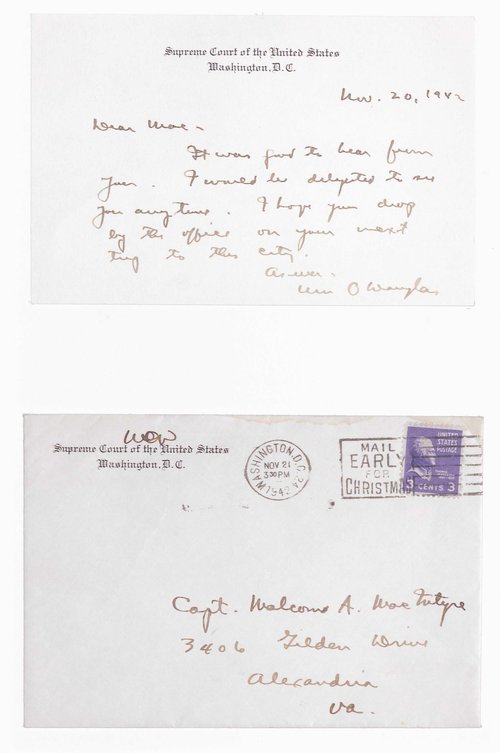 Supreme Court of the United States
Washington, D.C.
Nov. 20, 1942
Dear Mac -
It was good to hear from
you. I would be delighted to see
you anytime. I hope you drop
by the office on your next
trip to this city.
As ever.
Wm O Douglas
WOD
Supreme Court of the United States
Washington, D.C.
WASHINGTON, D.C.
NOV 21
3 30 PM
1942
MAIL
EARLY
FOR
CHRISTMAS
UNITED
STATES
POSTAGE
3 CENTS 3
Capt. Malcome A. MacIntyre
3406 Gilden Drive
Alexandria
Va.